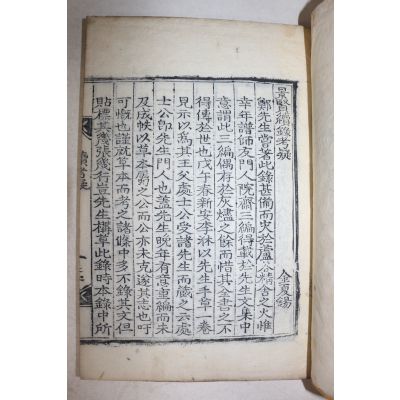 景賢續錄考疑
金夏錫
鄭先生嘗著此錄甚備而火於蘆谷精舍之火惟
幸年譜師友門人院齋三編得載於先生文集中
意謂此三編偶存於灰燼之餘而惜其全書之不
得傳於世也戊午春新安李 以先生手草一卷
見示以爲其王父處士公受諸先生而藏之云處
士公卽先生門人也蓋先生晩年有意重編而未
及成帙以草本屬之公而公亦未克遂其志也吁
可慨也謹就草本而考之諸條中多不錄其文但
貼標其幾張幾行豈先生構草此錄時本錄中所